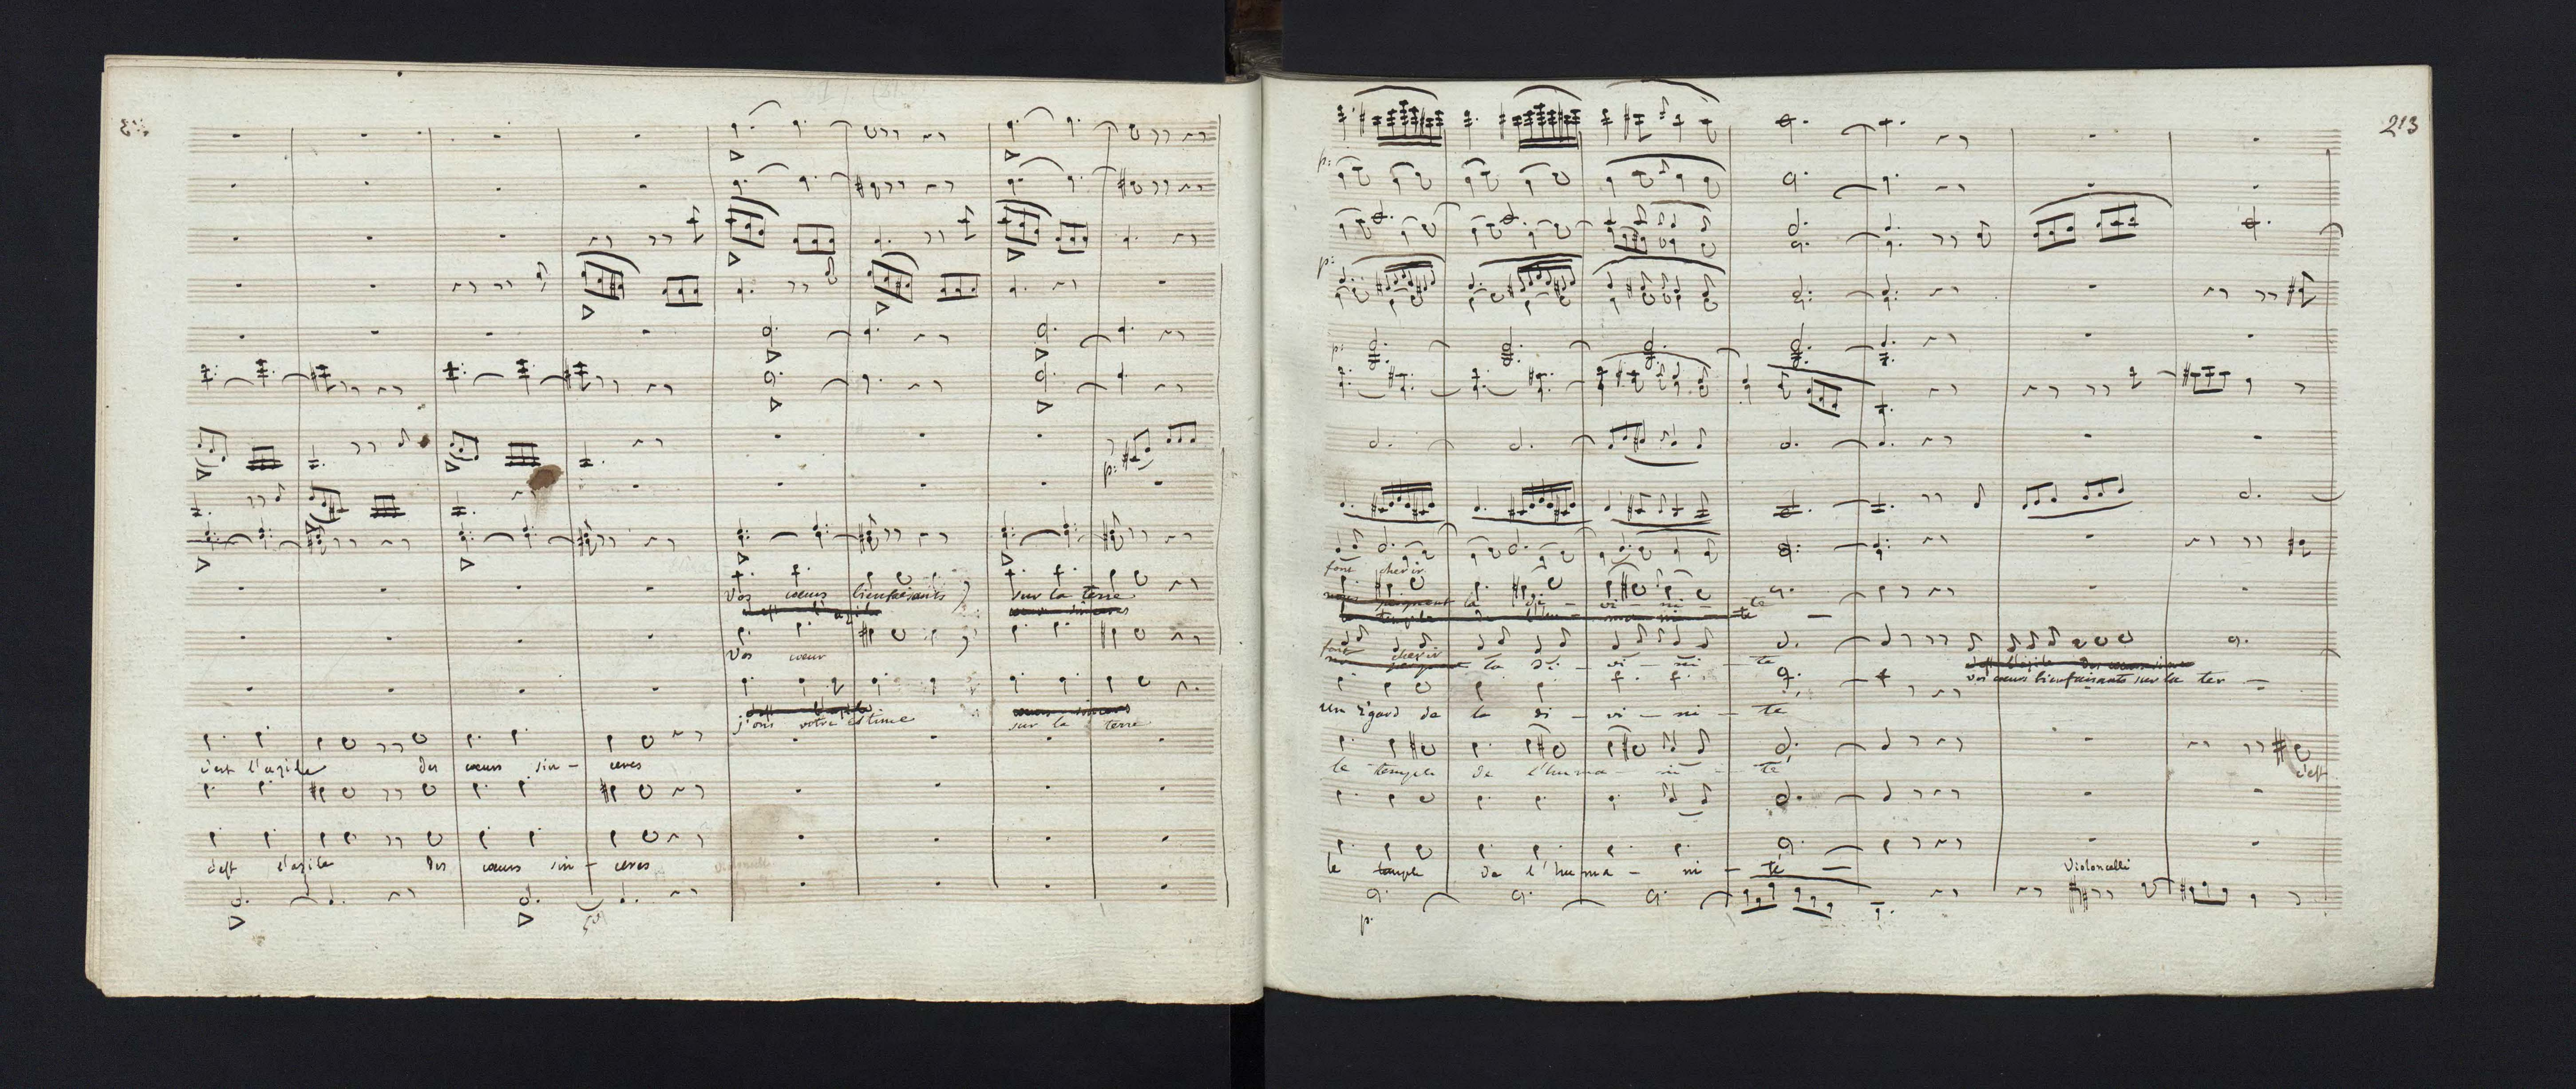 Vos cœurs bienfaisants sur la terre
c'est l'azile
Vos cœur
j'ose votre estime sur la terre
c'est l'azile des cœurs sin - ceres
c'est l'azile des cœurs sin - ceres
213
p:
p:
p:
p:
font cherir
la di - vi - ni - té
le temple de l'hu - ma - ni - té
font cherir
la di - vi - ni - te
vos cœurs bienfaisants sur la ter -
un regard de la di - vi - ni - te
le temple de l'huma - ni - té
c'est
le temple de l'huma - ni - té
Violoncelli
p.